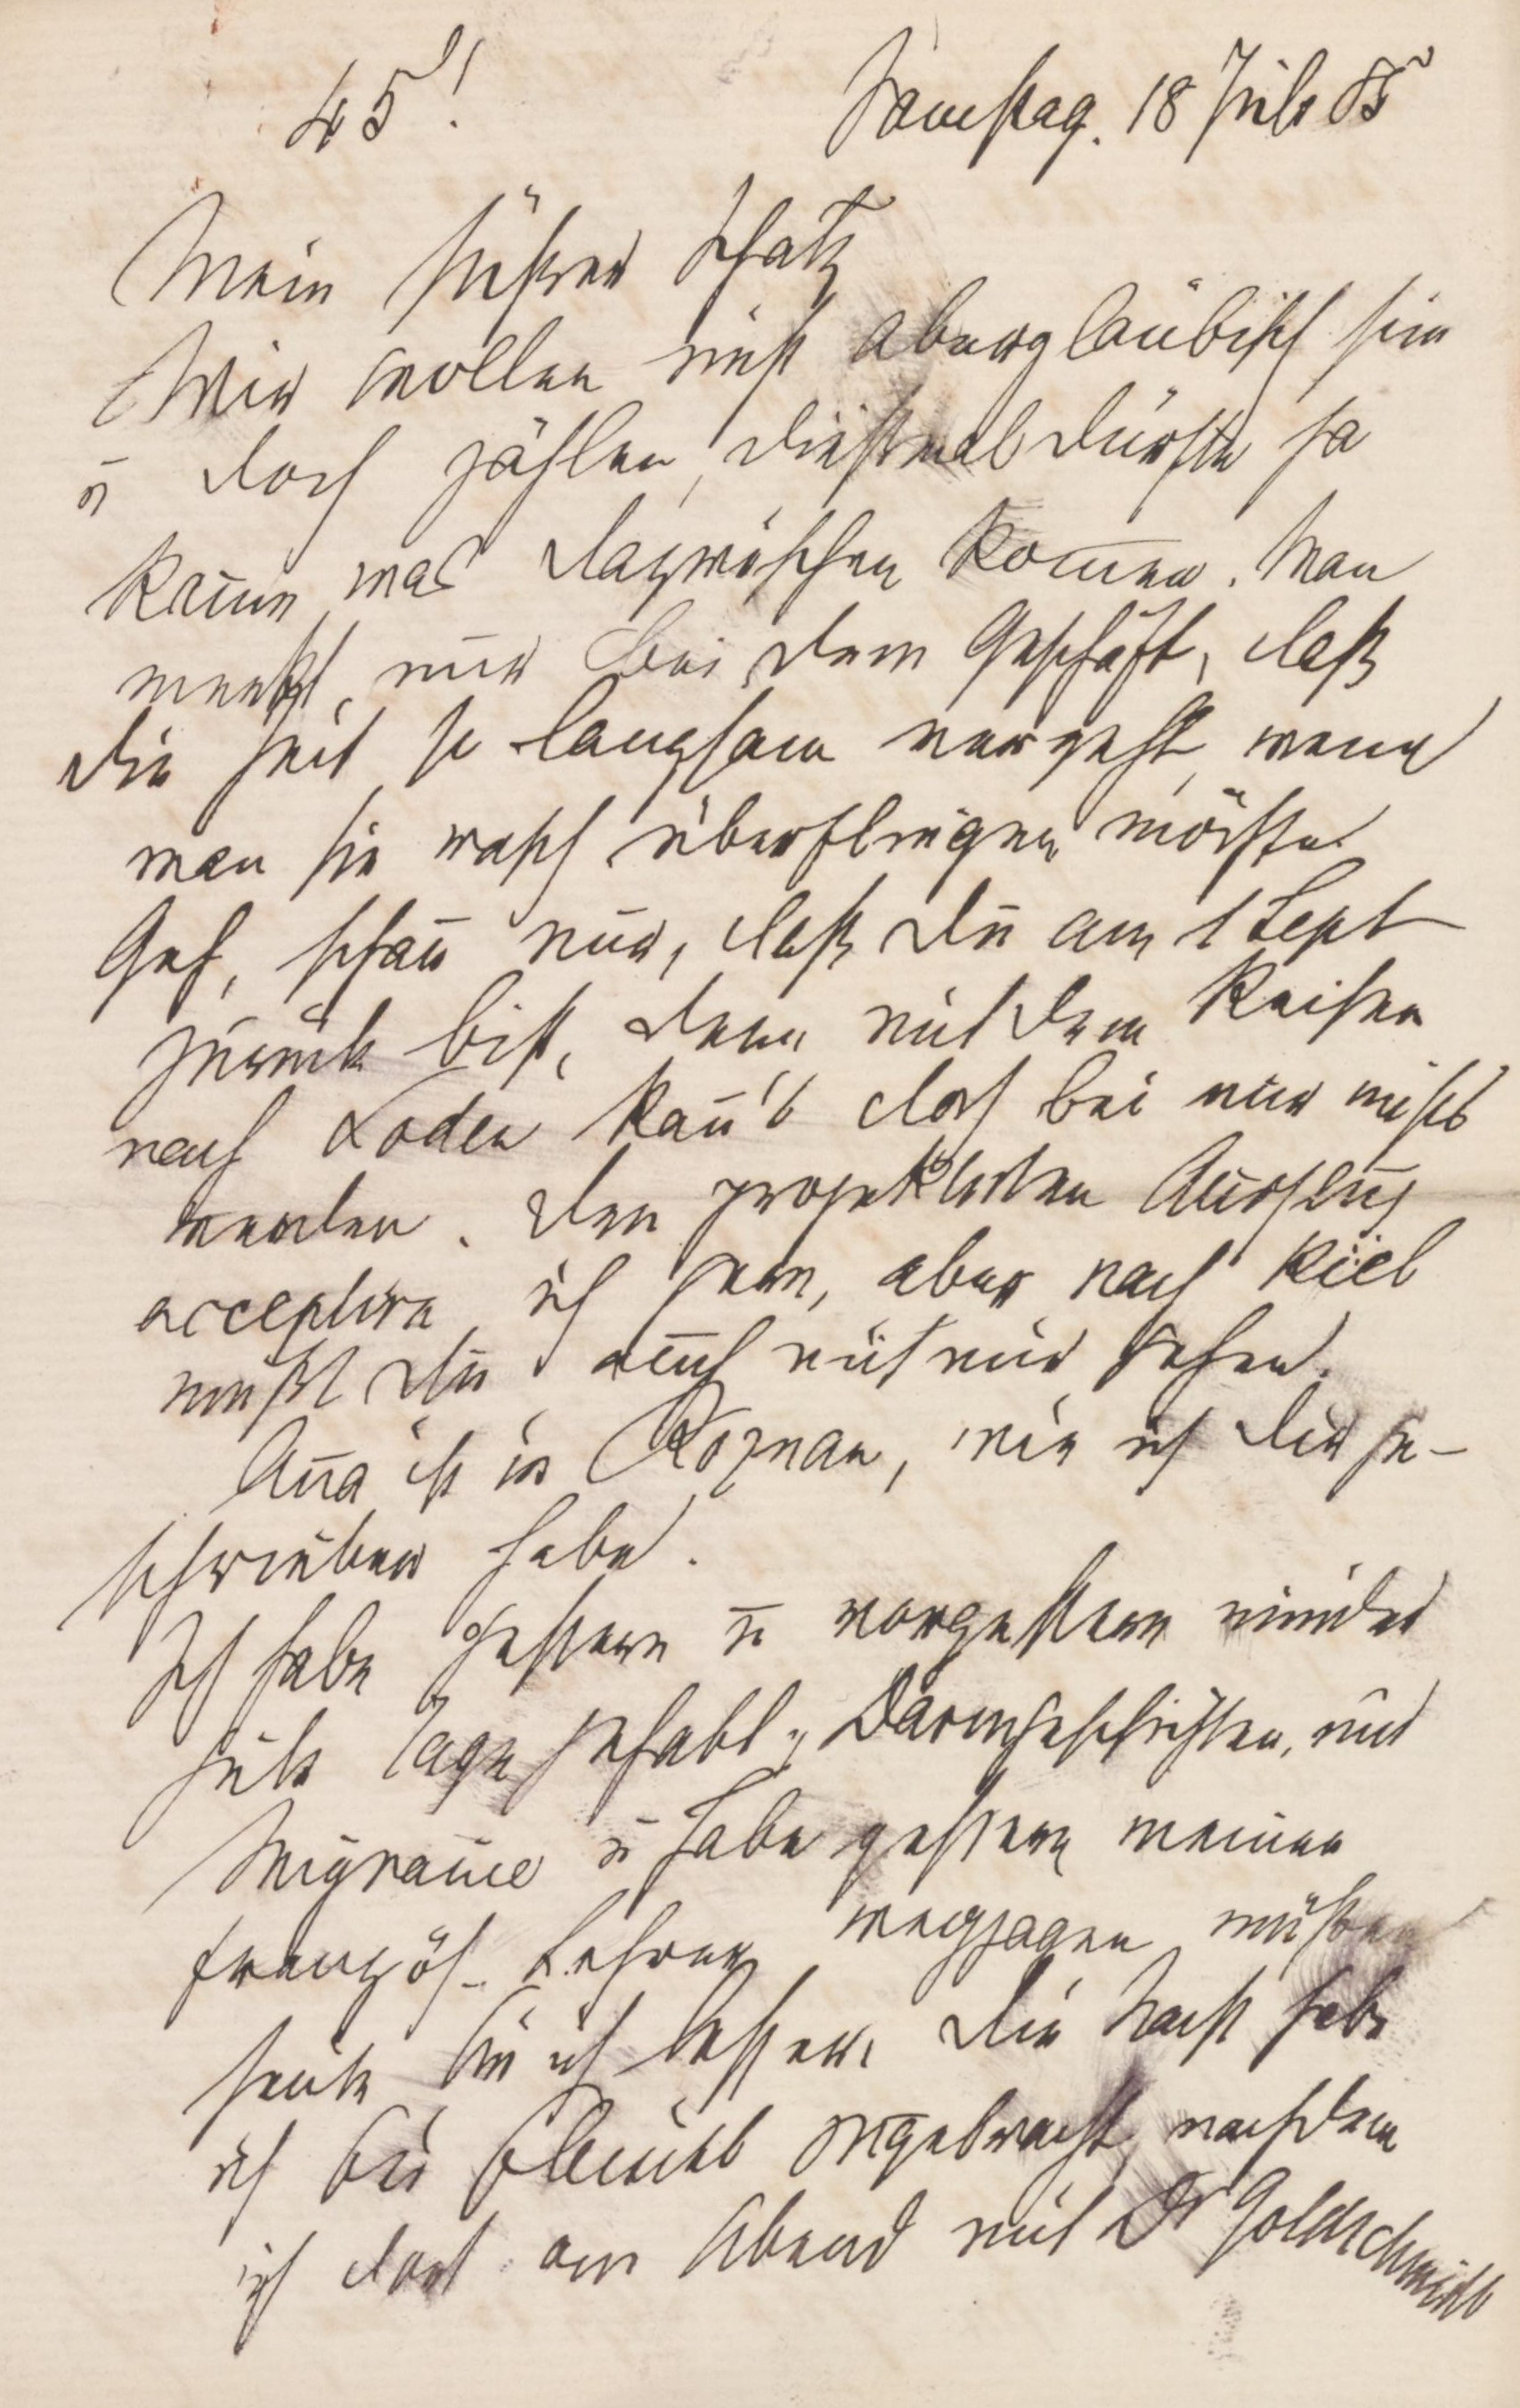 45!
Samstag. 18 Juli 85
Mein süßer Schatz
Wir wollen nicht abergläubisch sein
u doch zählen, diesmal dürfte ja
kaum was dazwischen kom̄en. Man
merkt nur bei dem Geschäft, daß
die Zeit so langsam vergeht, wenn
man sie rasch überfliegen möchte.
Geh, schau nur, daß Du am 1 Sept
zurück bist, denn mit dem Reisen
nach Loden kañ's doch bei mir nichts
werden. Den projektirten Ausflug
acceptire ich gern, aber nach Kiel
mußt Du auch mit mir gehen.
Añа ist in Roznau, wie ich Dir ge-
schrieben habe.
Ich habe gestern u vorgestern minder
gute Tage gehabt, Darmgeschichten, mit
Migraine u habe gestern meinen
französ. Lehrer wegjagen müßen
heute bin ich besser. Die Nacht habe
ich bei zugebracht, nachdem
ich dort am Abend mit Dr Goldschmidt